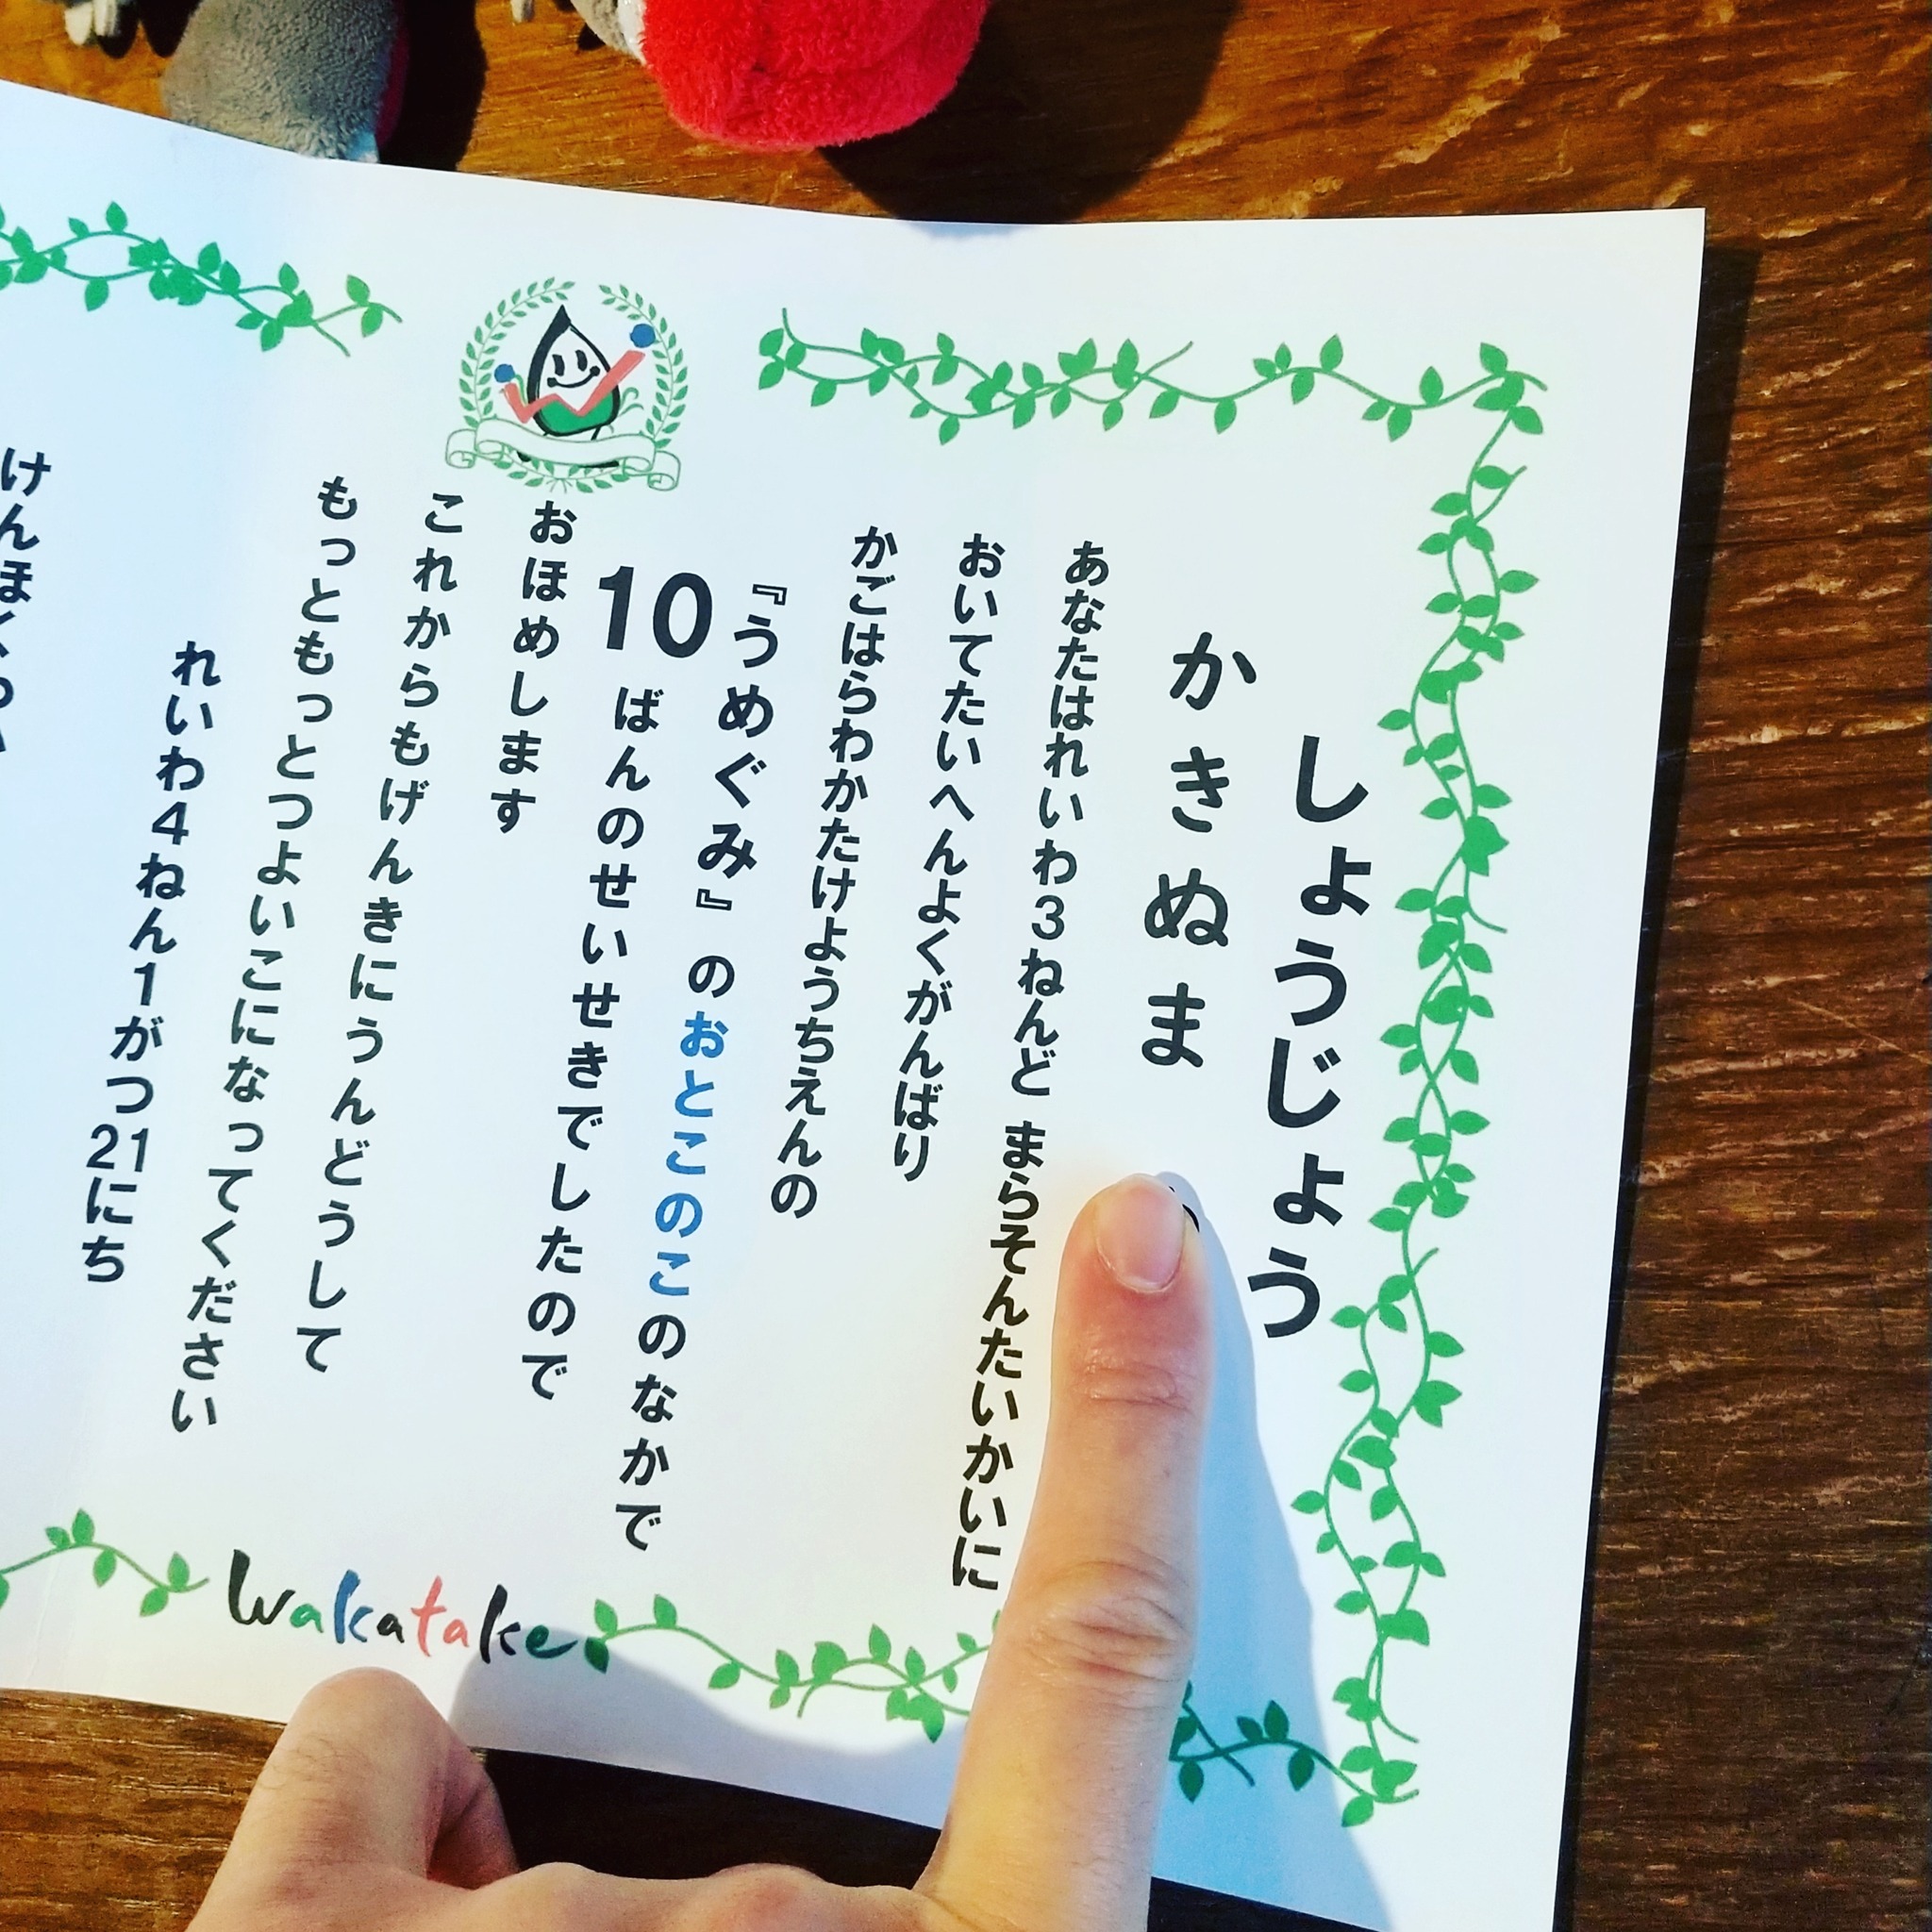 しょうじょう
かきぬま
あなたはれいわ3ねんど まらそんたいかいに
おいてたいへんよくがんばり
かごはらわかたけようちえんの
『うめぐみ』のおとこのこのなかで
10ばんのせいせきでしたので
おほめします
これからもげんきにうんどうして
もっともっとつよいこになってください
れいわ4ねん1がつ21にち
wakatake